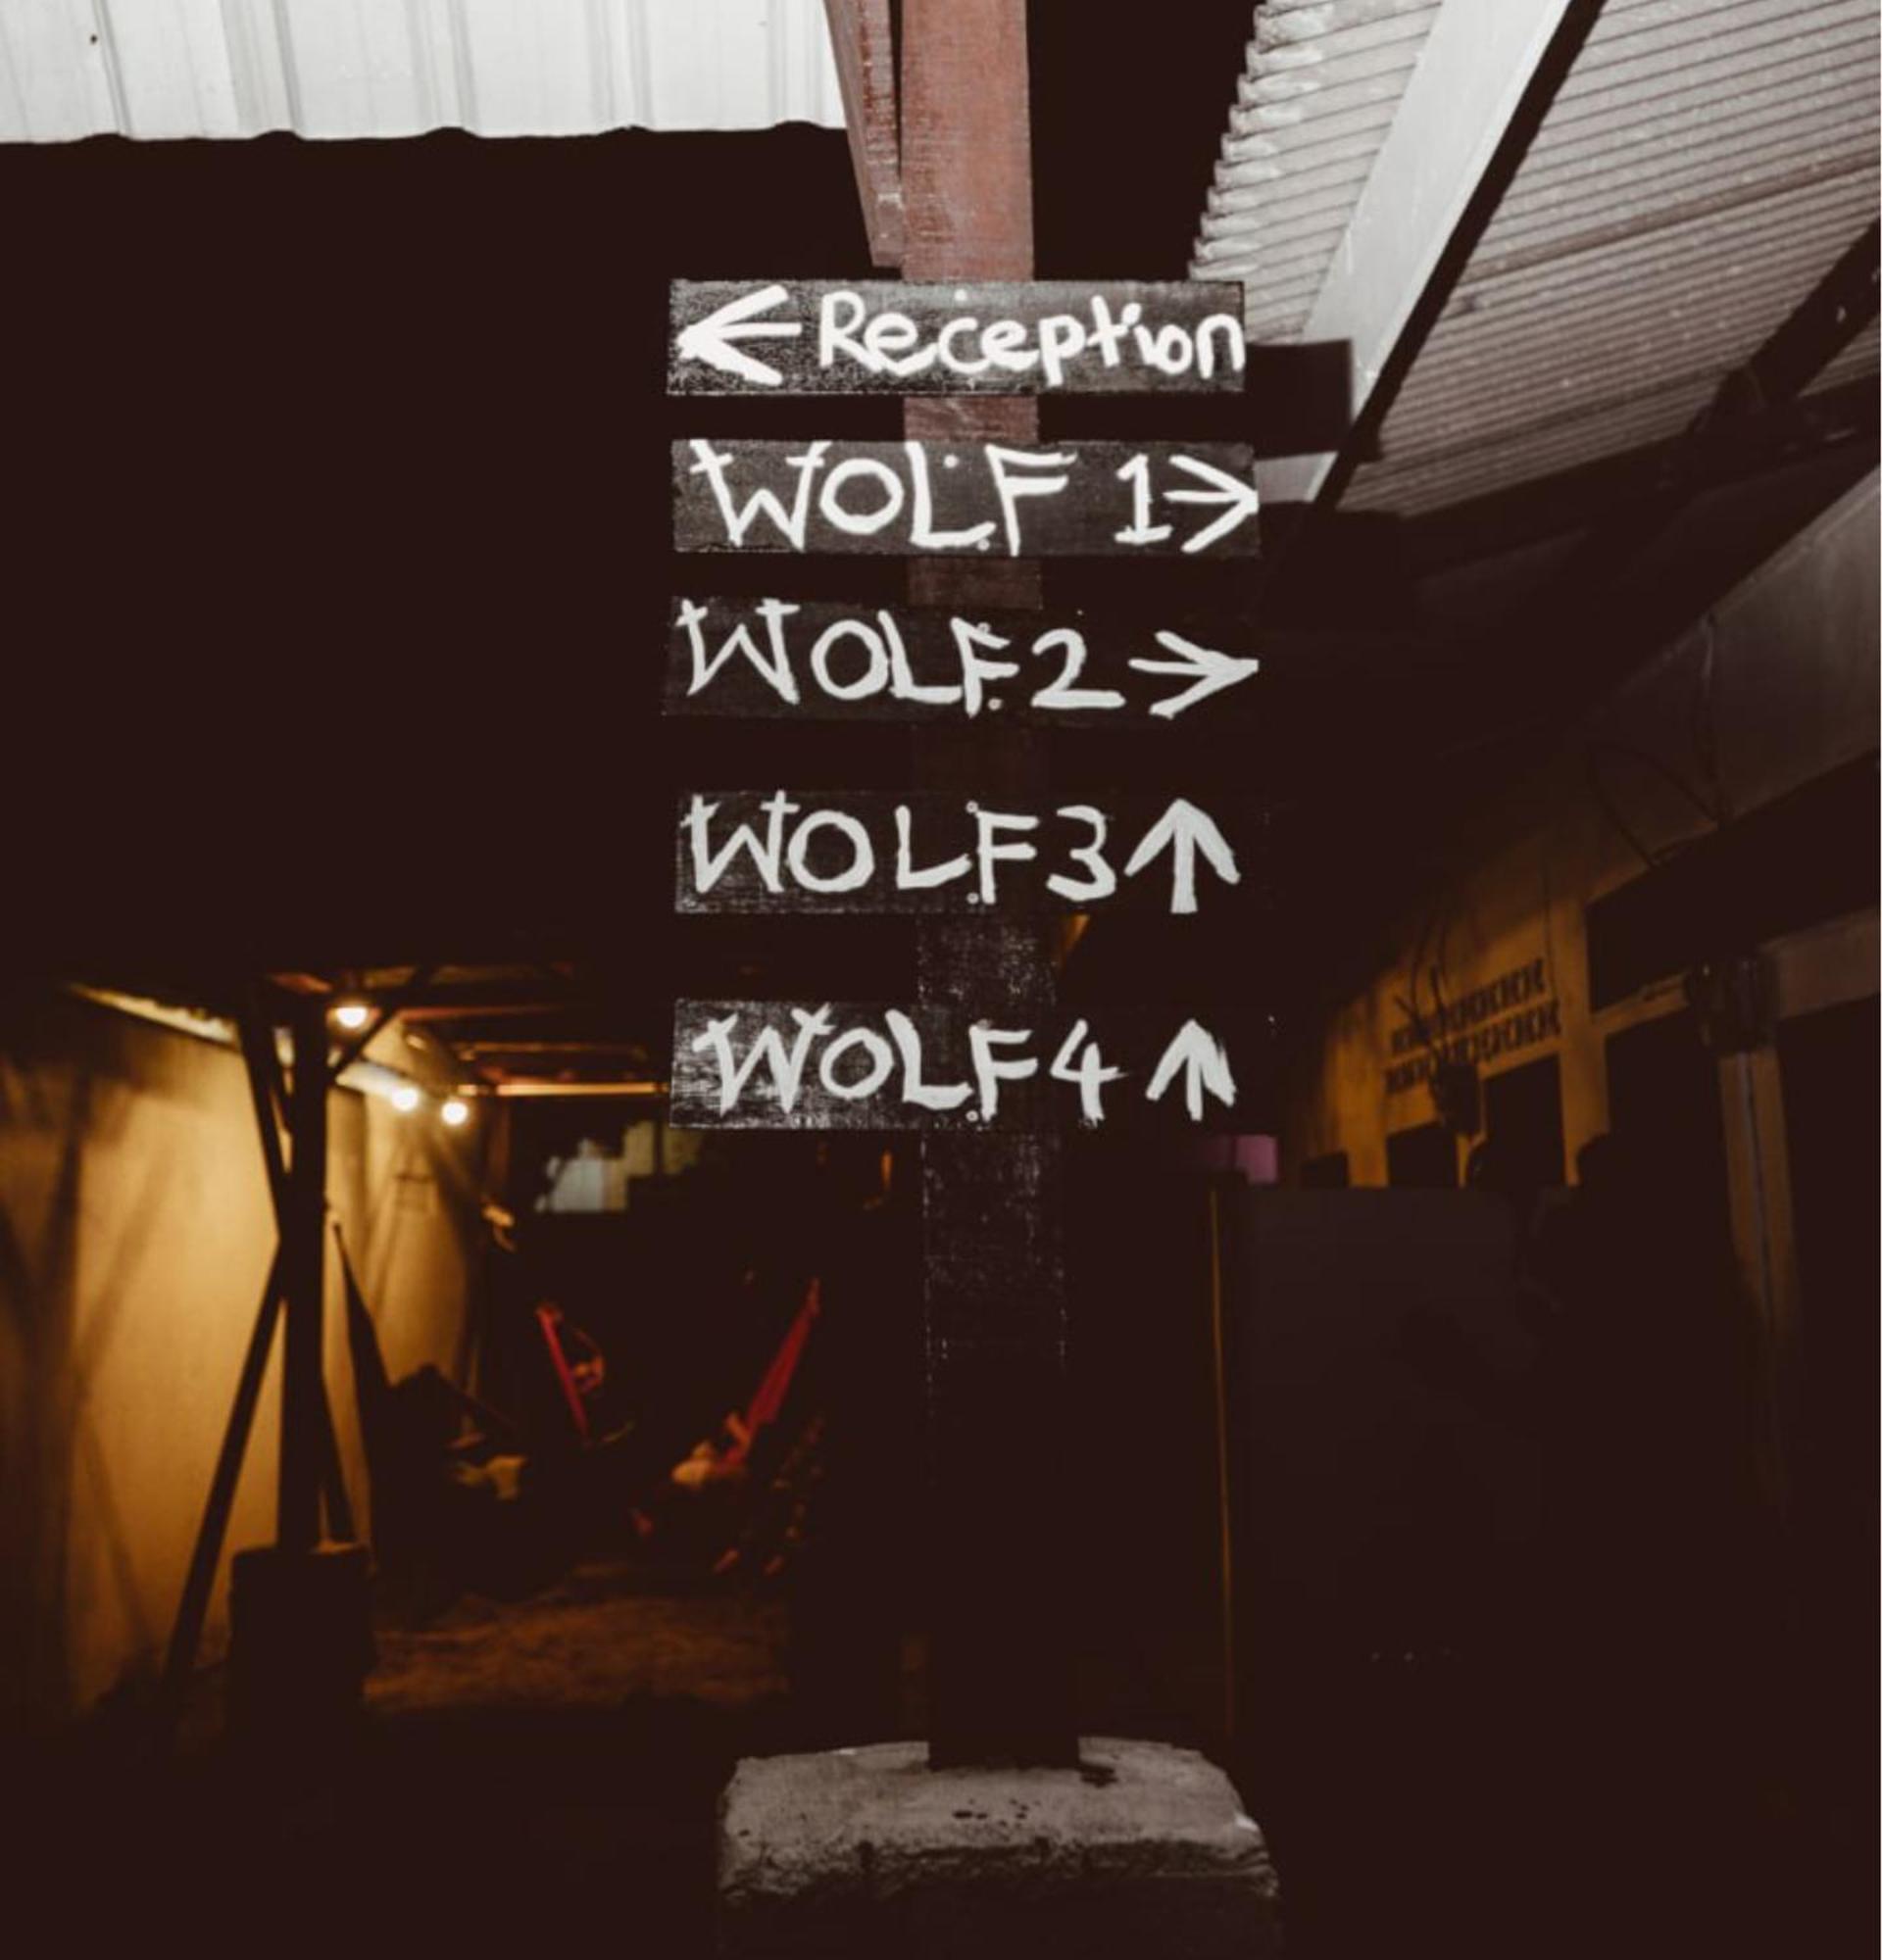 ← Reception
WOLF 1→
WOLF2→
WOLF3↑
WOLF4↑